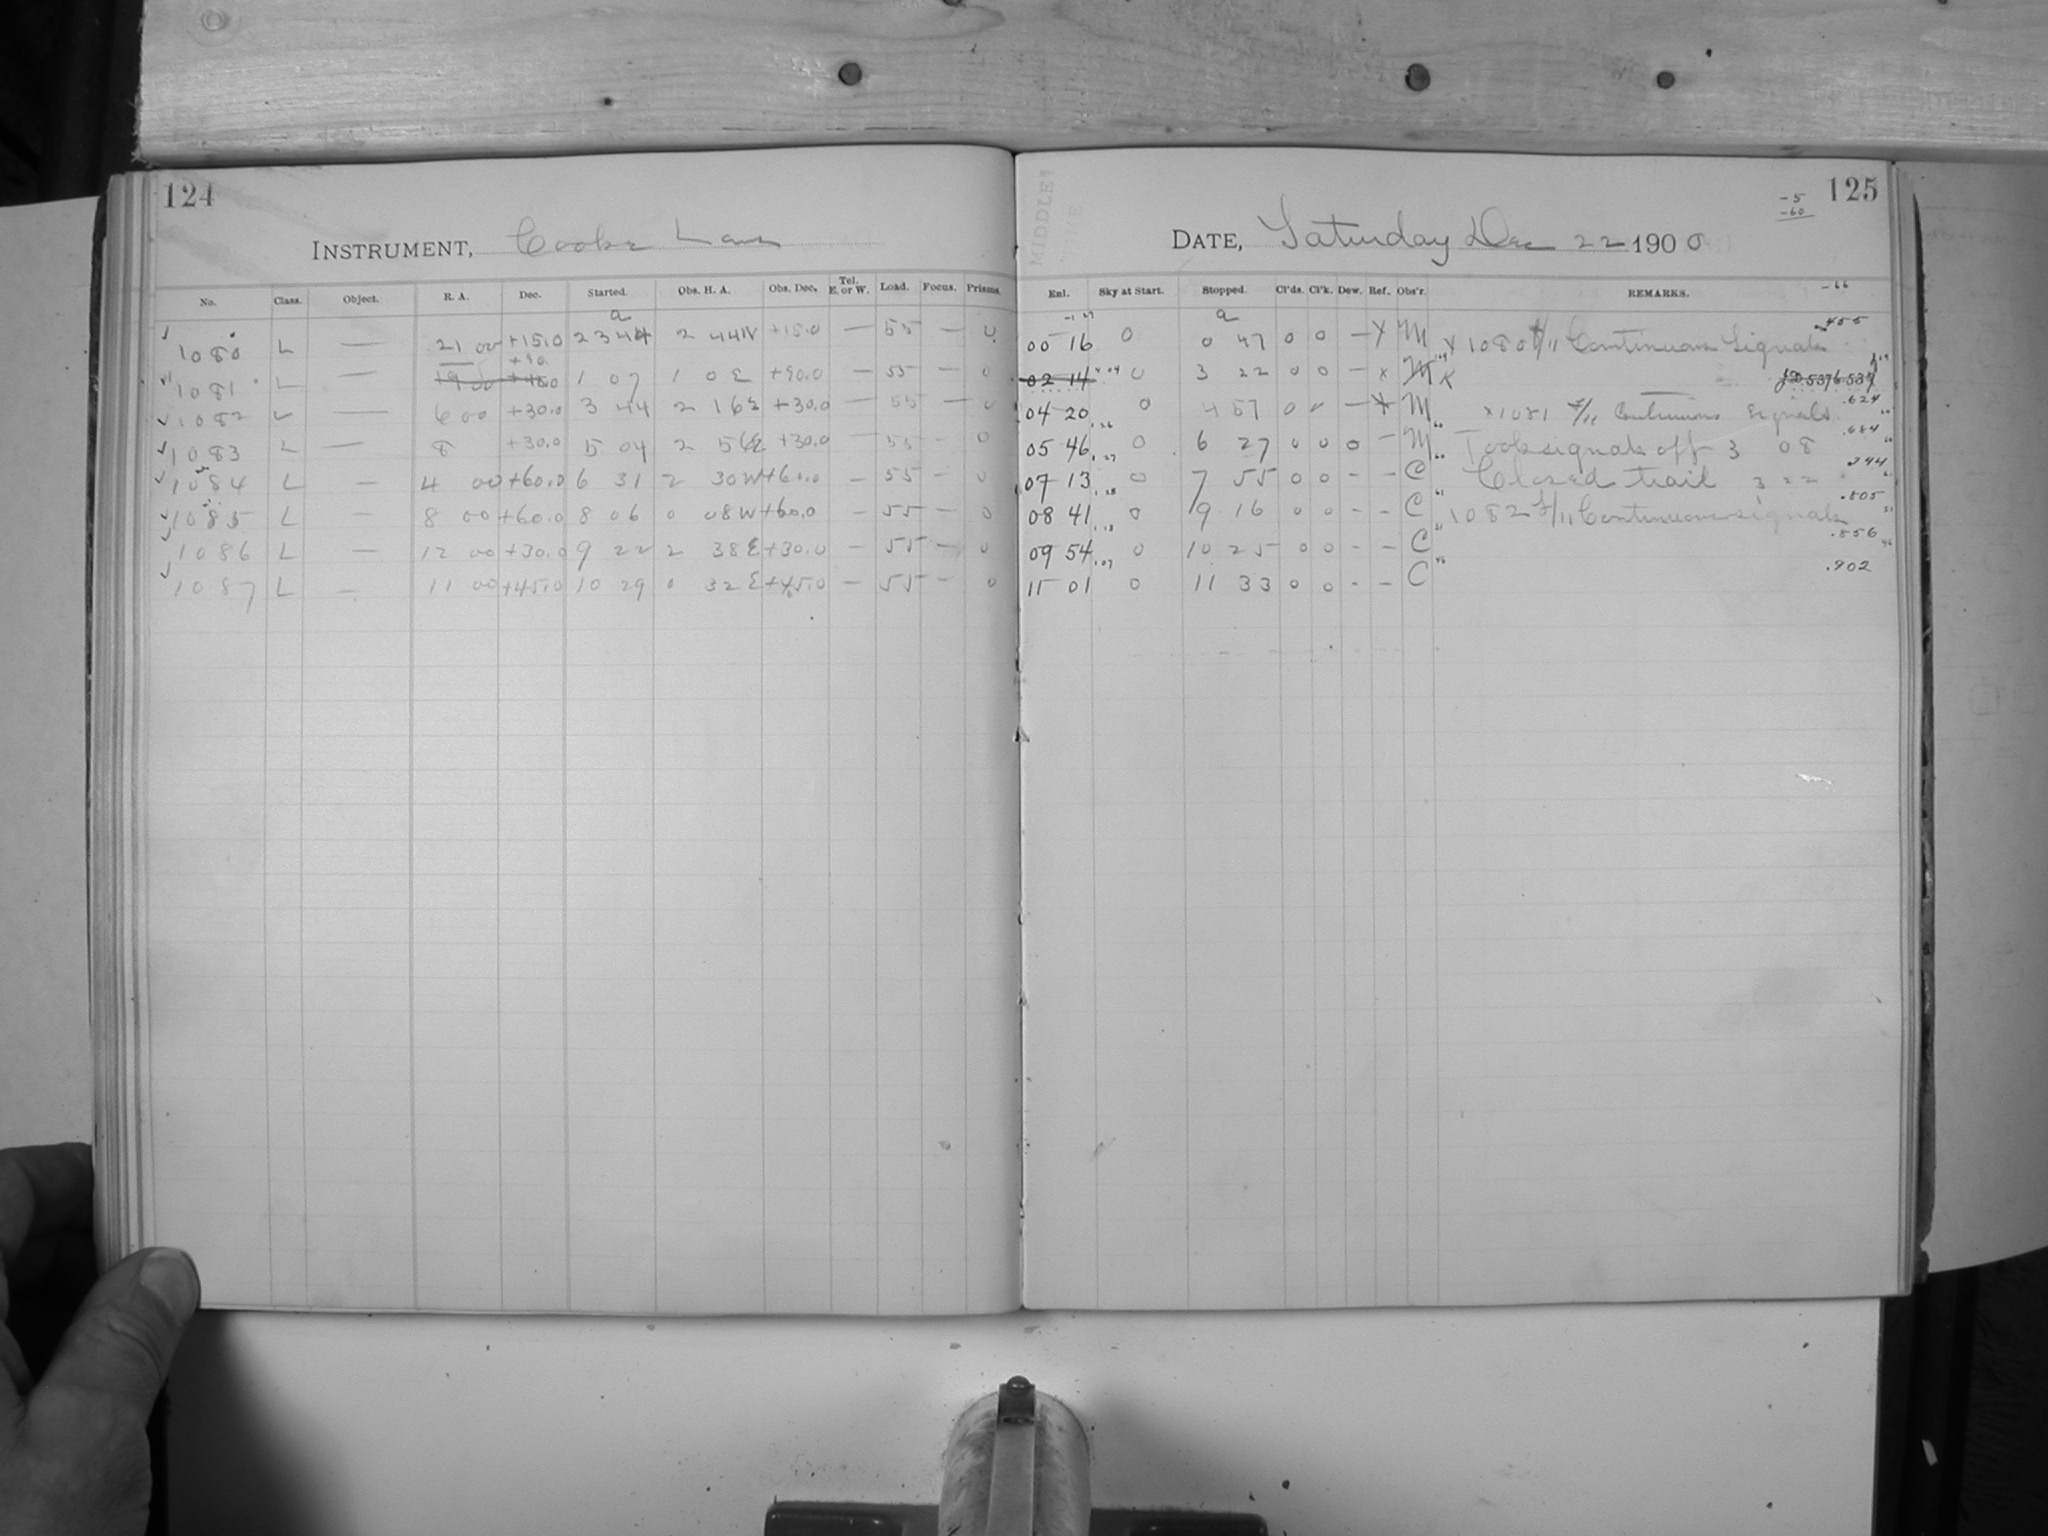 124
INSTRUMENT, Cooke Lens
No. Class. Object. R. A. Dec. Started. Obs. H. A. Obs. Dec. Tel. E. or W. Load. Focus. Prisms.
a
1080 L — 21 00 +15.0 23 44 2 44W +15.0 — 55 — 0
+90.
1081 L — +40.0 1 07 1 0 E +90.0 — 55 — 0
1082 L — 6 00 +30.0 3 44 2 16E +30.0 — 55 — 0
1083 L — 8 +30.0 5 04 2 56E +30.0 — 55 — 0
1084 L — 4 00 +60.0 6 31 2 30W +60.0 — 55 — 0
1085 L — 8 00 +60.0 8 06 0 08W +60.0 — 55 — 0
1086 L — 12 00 +30.0 9 22 2 38E +30.0 — 55 — 0
1087 L — 11 00 +45.0 10 29 0 32E +45.0 — 55 — 0
125
-5
-60
DATE, Saturday Dec 22 1900
-66
Enl. Sky at Start. Stopped. Cl'ds. Cl'k. Dew. Ref. Obs'r. REMARKS.
a
00 16 0 0 47 0 0 — X M X 1080 f/11 Continuous Signals .455
02 14 0 3 22 0 0 — x M X JD 5376.539
04 20 0 4 57 0 — X M X1081 f/11 Continuous Signals .624
05 46 0 6 27 0 0 0 — M Took signals off 3 08 .684
07 13 0 7 55 0 0 - - C Closed trail 3 22 .744
08 41 0 9 16 0 0 - - C 1082 f/11 Continuous signals .805
09 54 0 10 25 0 0 - - C .856
11 01 0 11 33 0 0 - - C .902